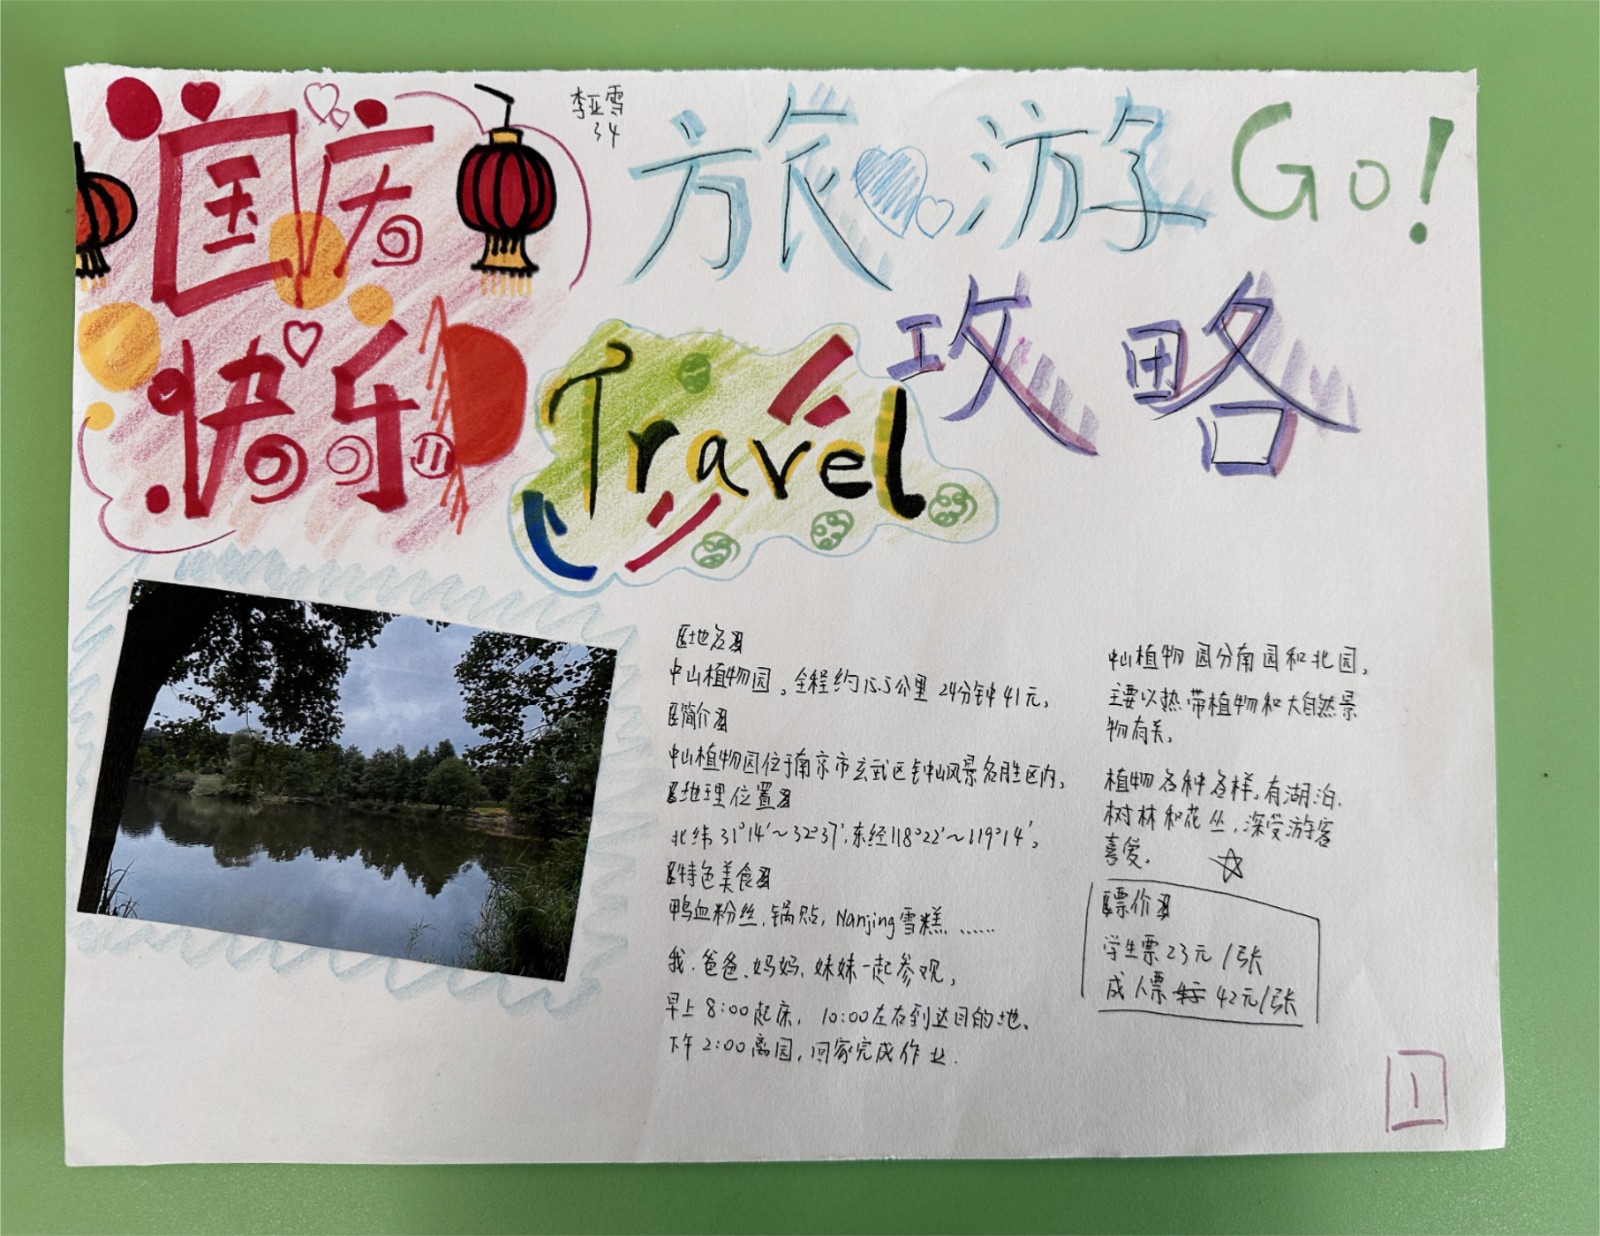 国庆
快乐
李亚雪
34
旅游Go!
攻略
Travel
【地名】
中山植物园。全程约15.5公里 24分钟41元。
【简介】
中山植物园位于南京市玄武区钟山风景名胜区内。
【地理位置】
北纬31°14′～32°37′,东经118°22′～119°14′。
【特色美食】
鸭血粉丝、锅贴, Nanjing雪糕……
我、爸爸、妈妈、妹妹一起参观。
早上8:00起床, 10:00左右到达目的地。
下午2:00离园, 回家完成作业.
中山植物园分南园和北园。
主要以热带植物和大自然景
物有关。
植物各种各样,有湖泊.
树林和花丛,深受游客
喜爱。
【票价】
学生票23元/张
成人票 42元/张
1